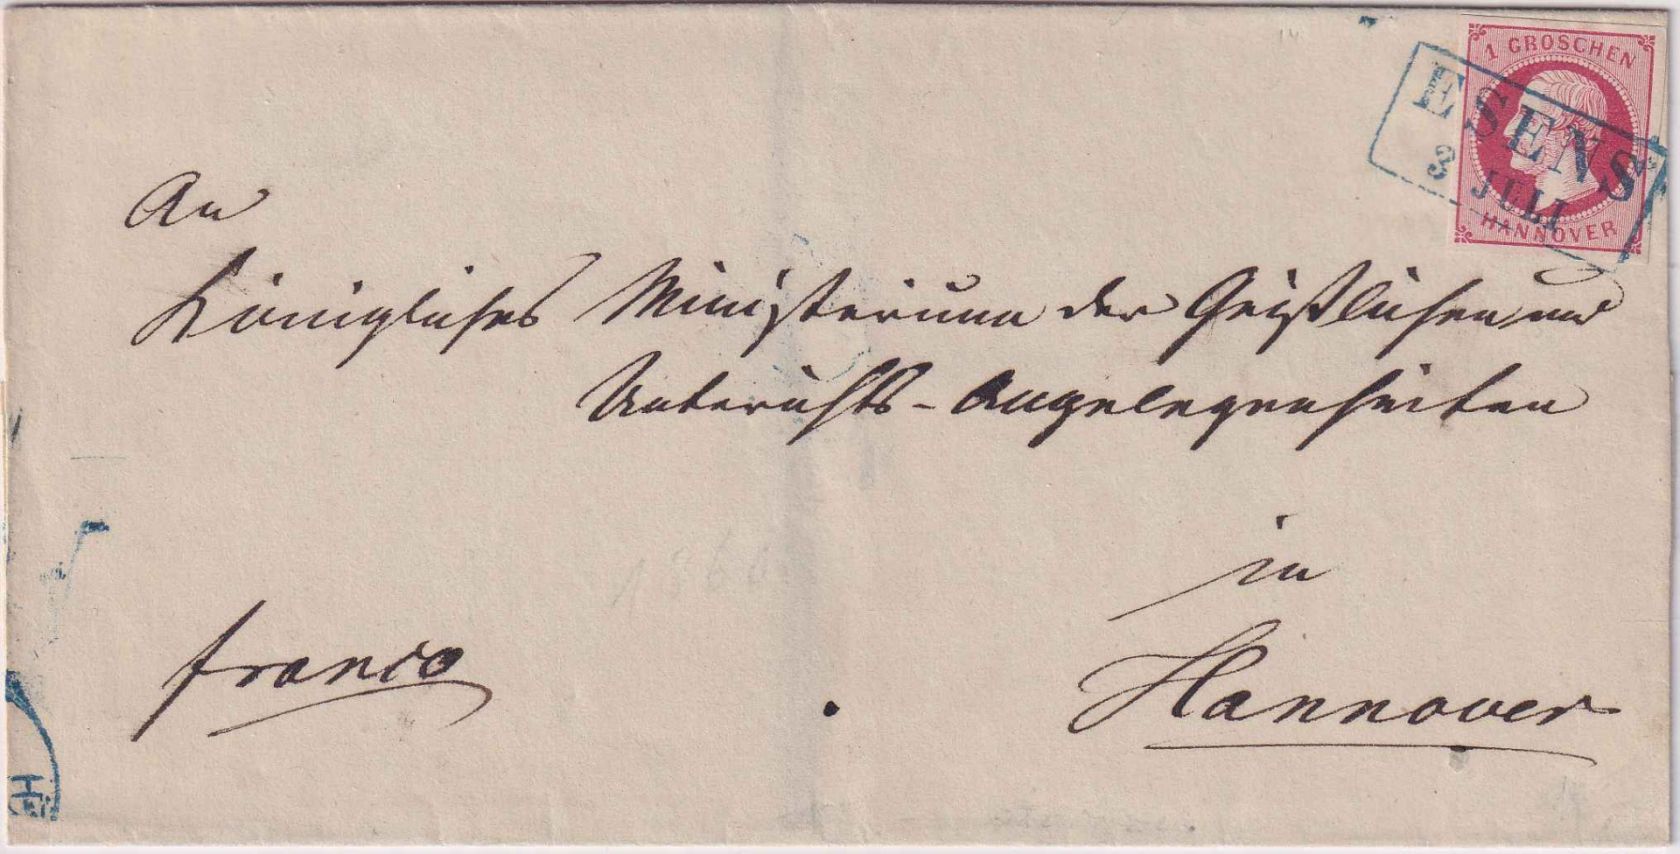 1 GROSCHEN
HANNOVER
ESENS
3 JULI
An
Königliches Ministerium der Geistlichen und
Unterrichts-Angelegenheiten
in
Hannover
franco
1860